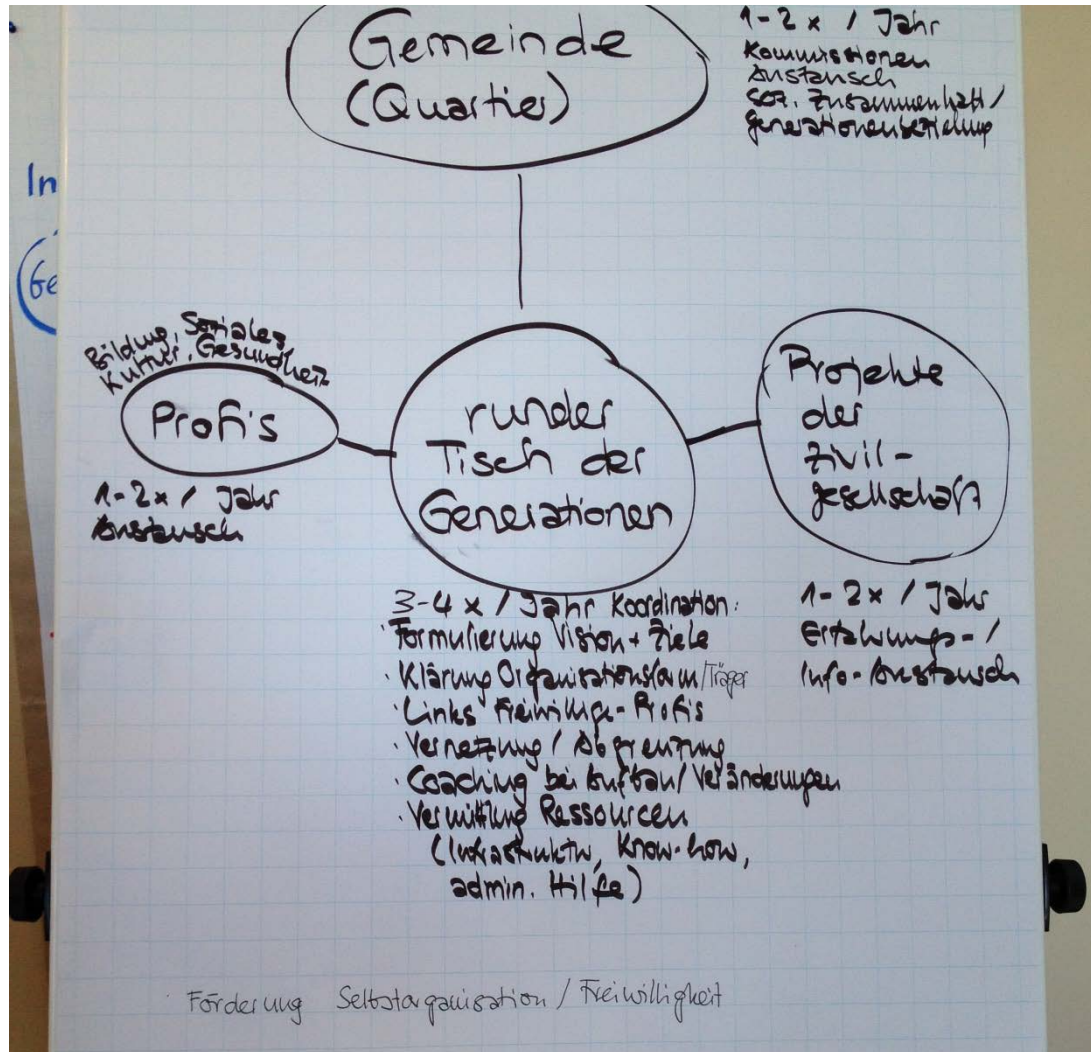 Gemeinde
(Quartier)
1-2 x / Jahr
Kommissionen
Austausch
soz. Zusammenhalt /
Generationenbeziehung
In
Ge
Bildung, Soziales,
Kultur, Gesundheit
Profis
1-2 x / Jahr
Austausch
runder
Tisch der
Generationen
Projekte
der
Zivil-
gesellschaft
3-4 x / Jahr Koordination:
· Formulierung Vision + Ziele
· Klärung Organisationsform/Träger
· Links Freiwillige-Profis
· Vernetzung / Abgrenzung
· Coaching bei Aufbau/Veränderungen
· Vermittlung Ressourcen
(Infrastruktur, Know-how,
admin. Hilfe)
1-2 x / Jahr
Erfahrungs-/
Info-Austausch
Förderung Selbstorganisation / Freiwilligkeit